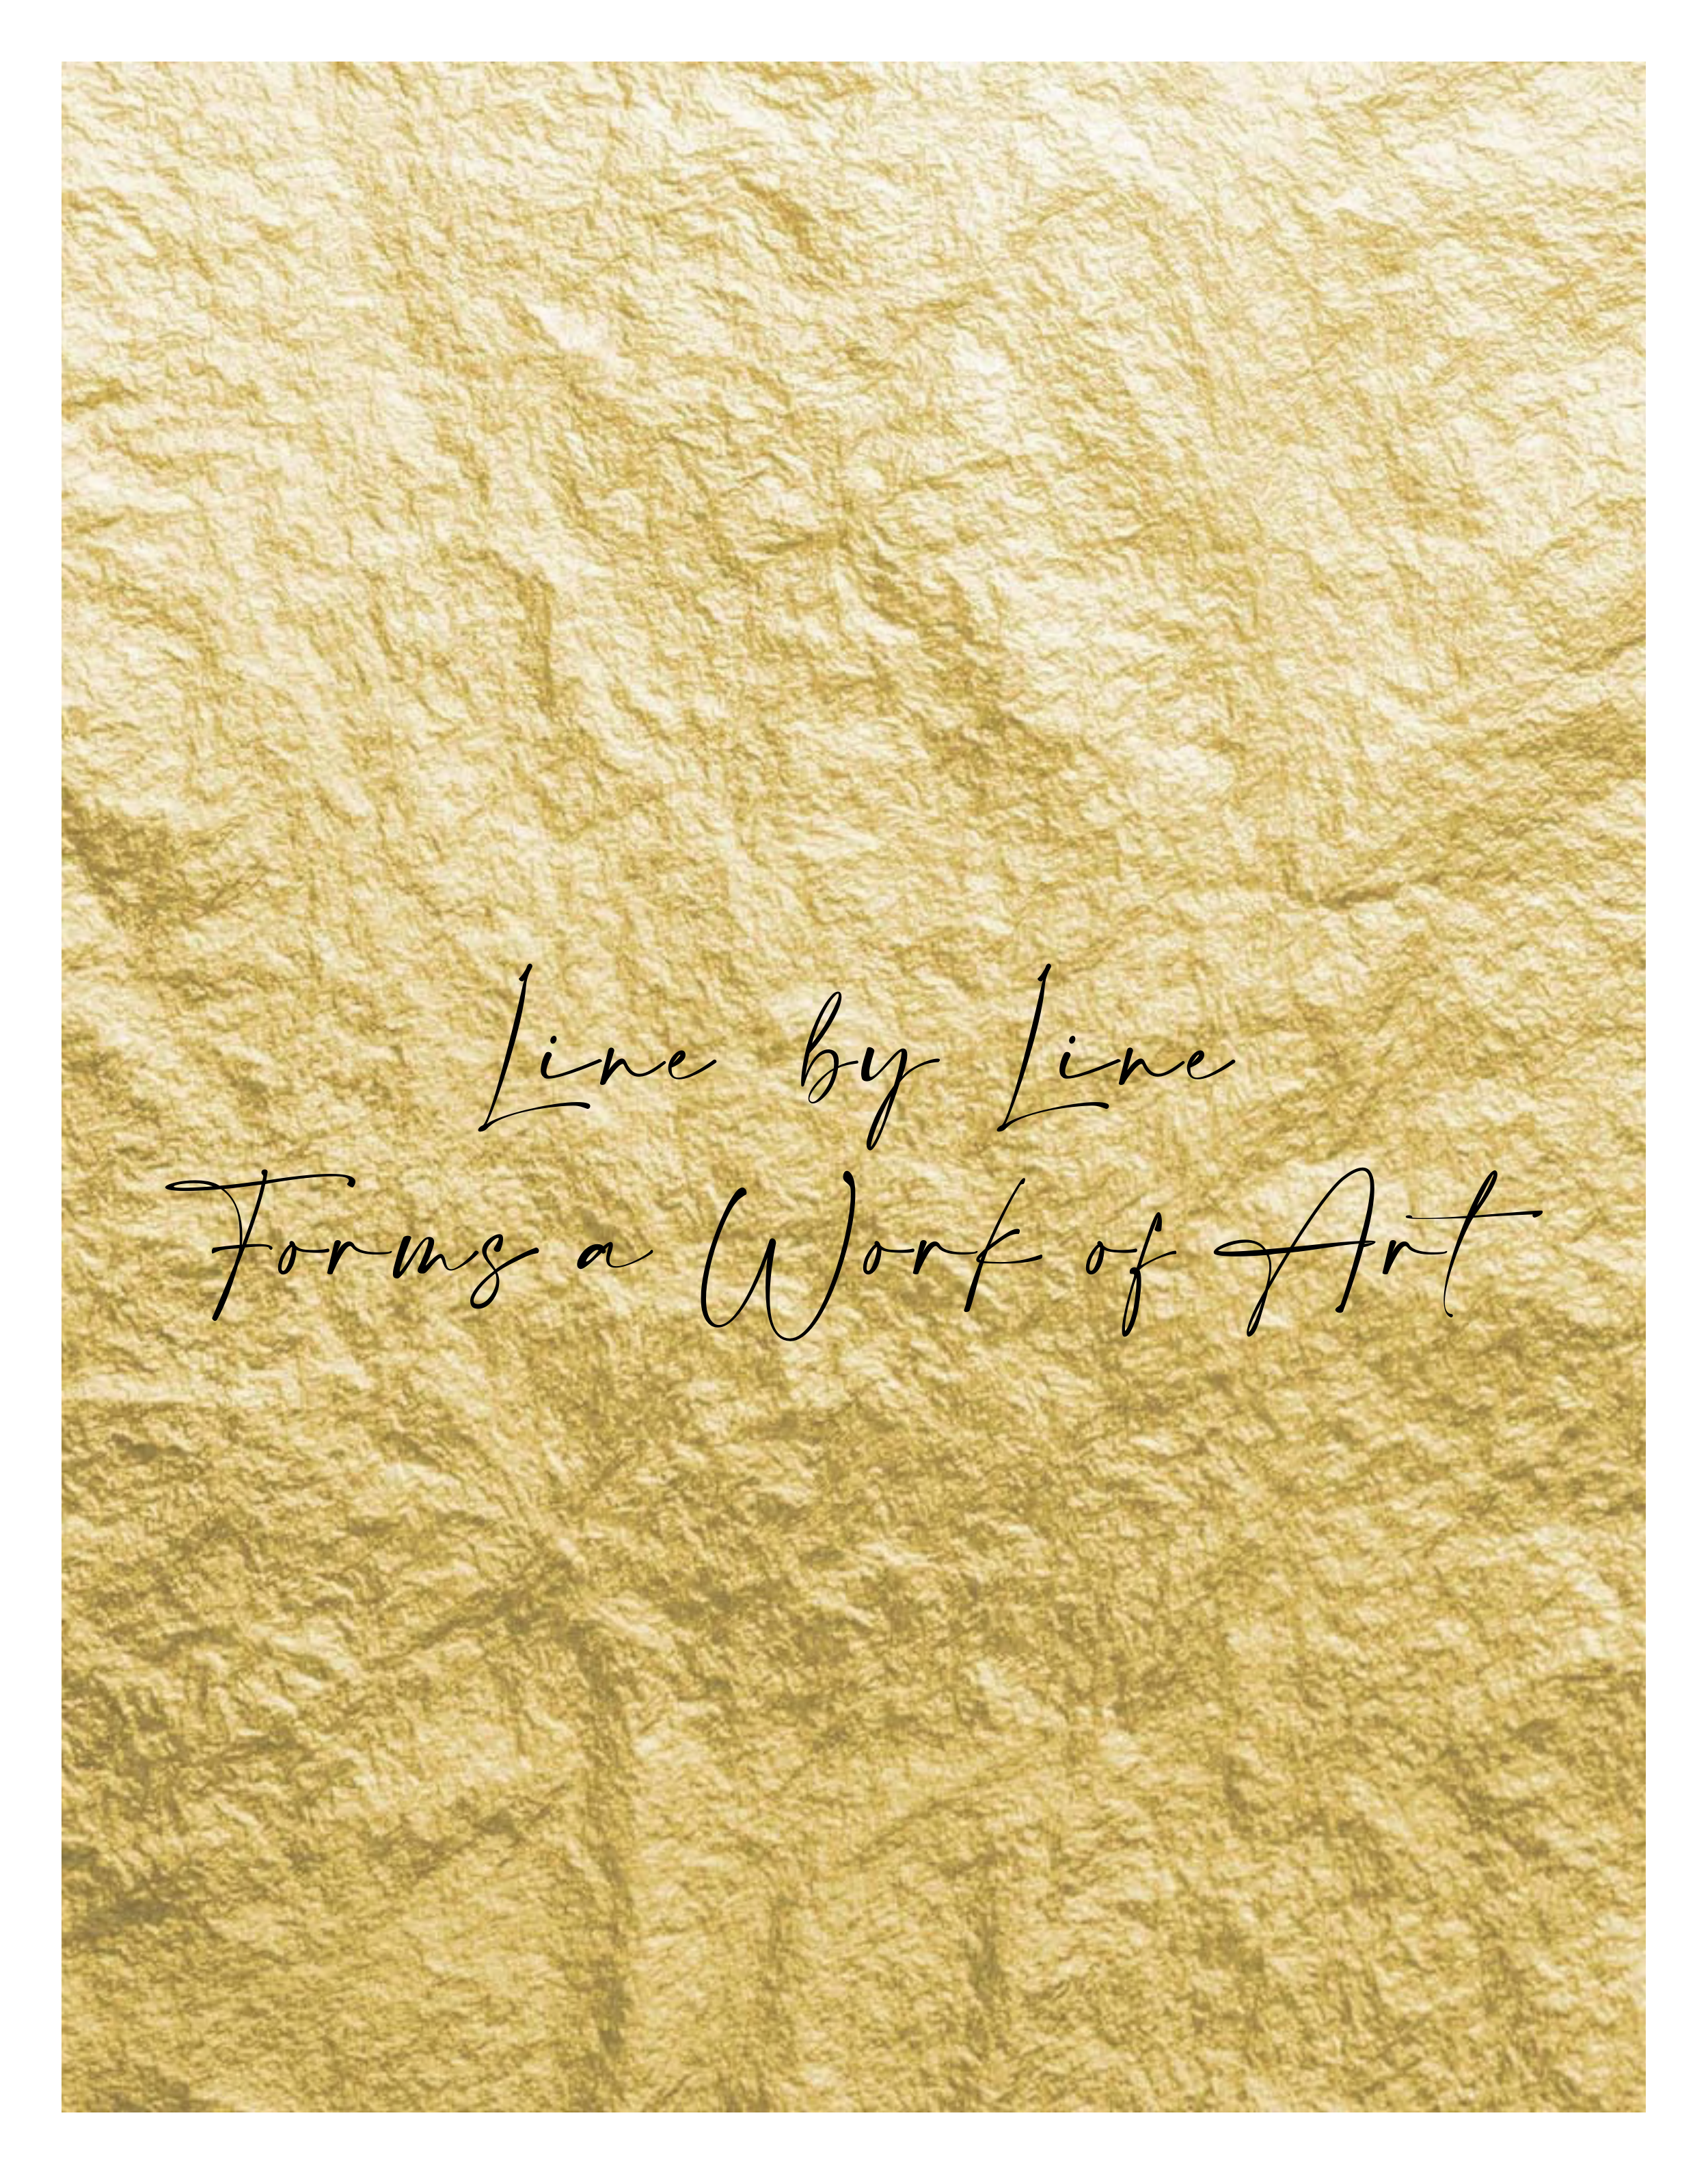 Line by Line
Forms a Work of Art